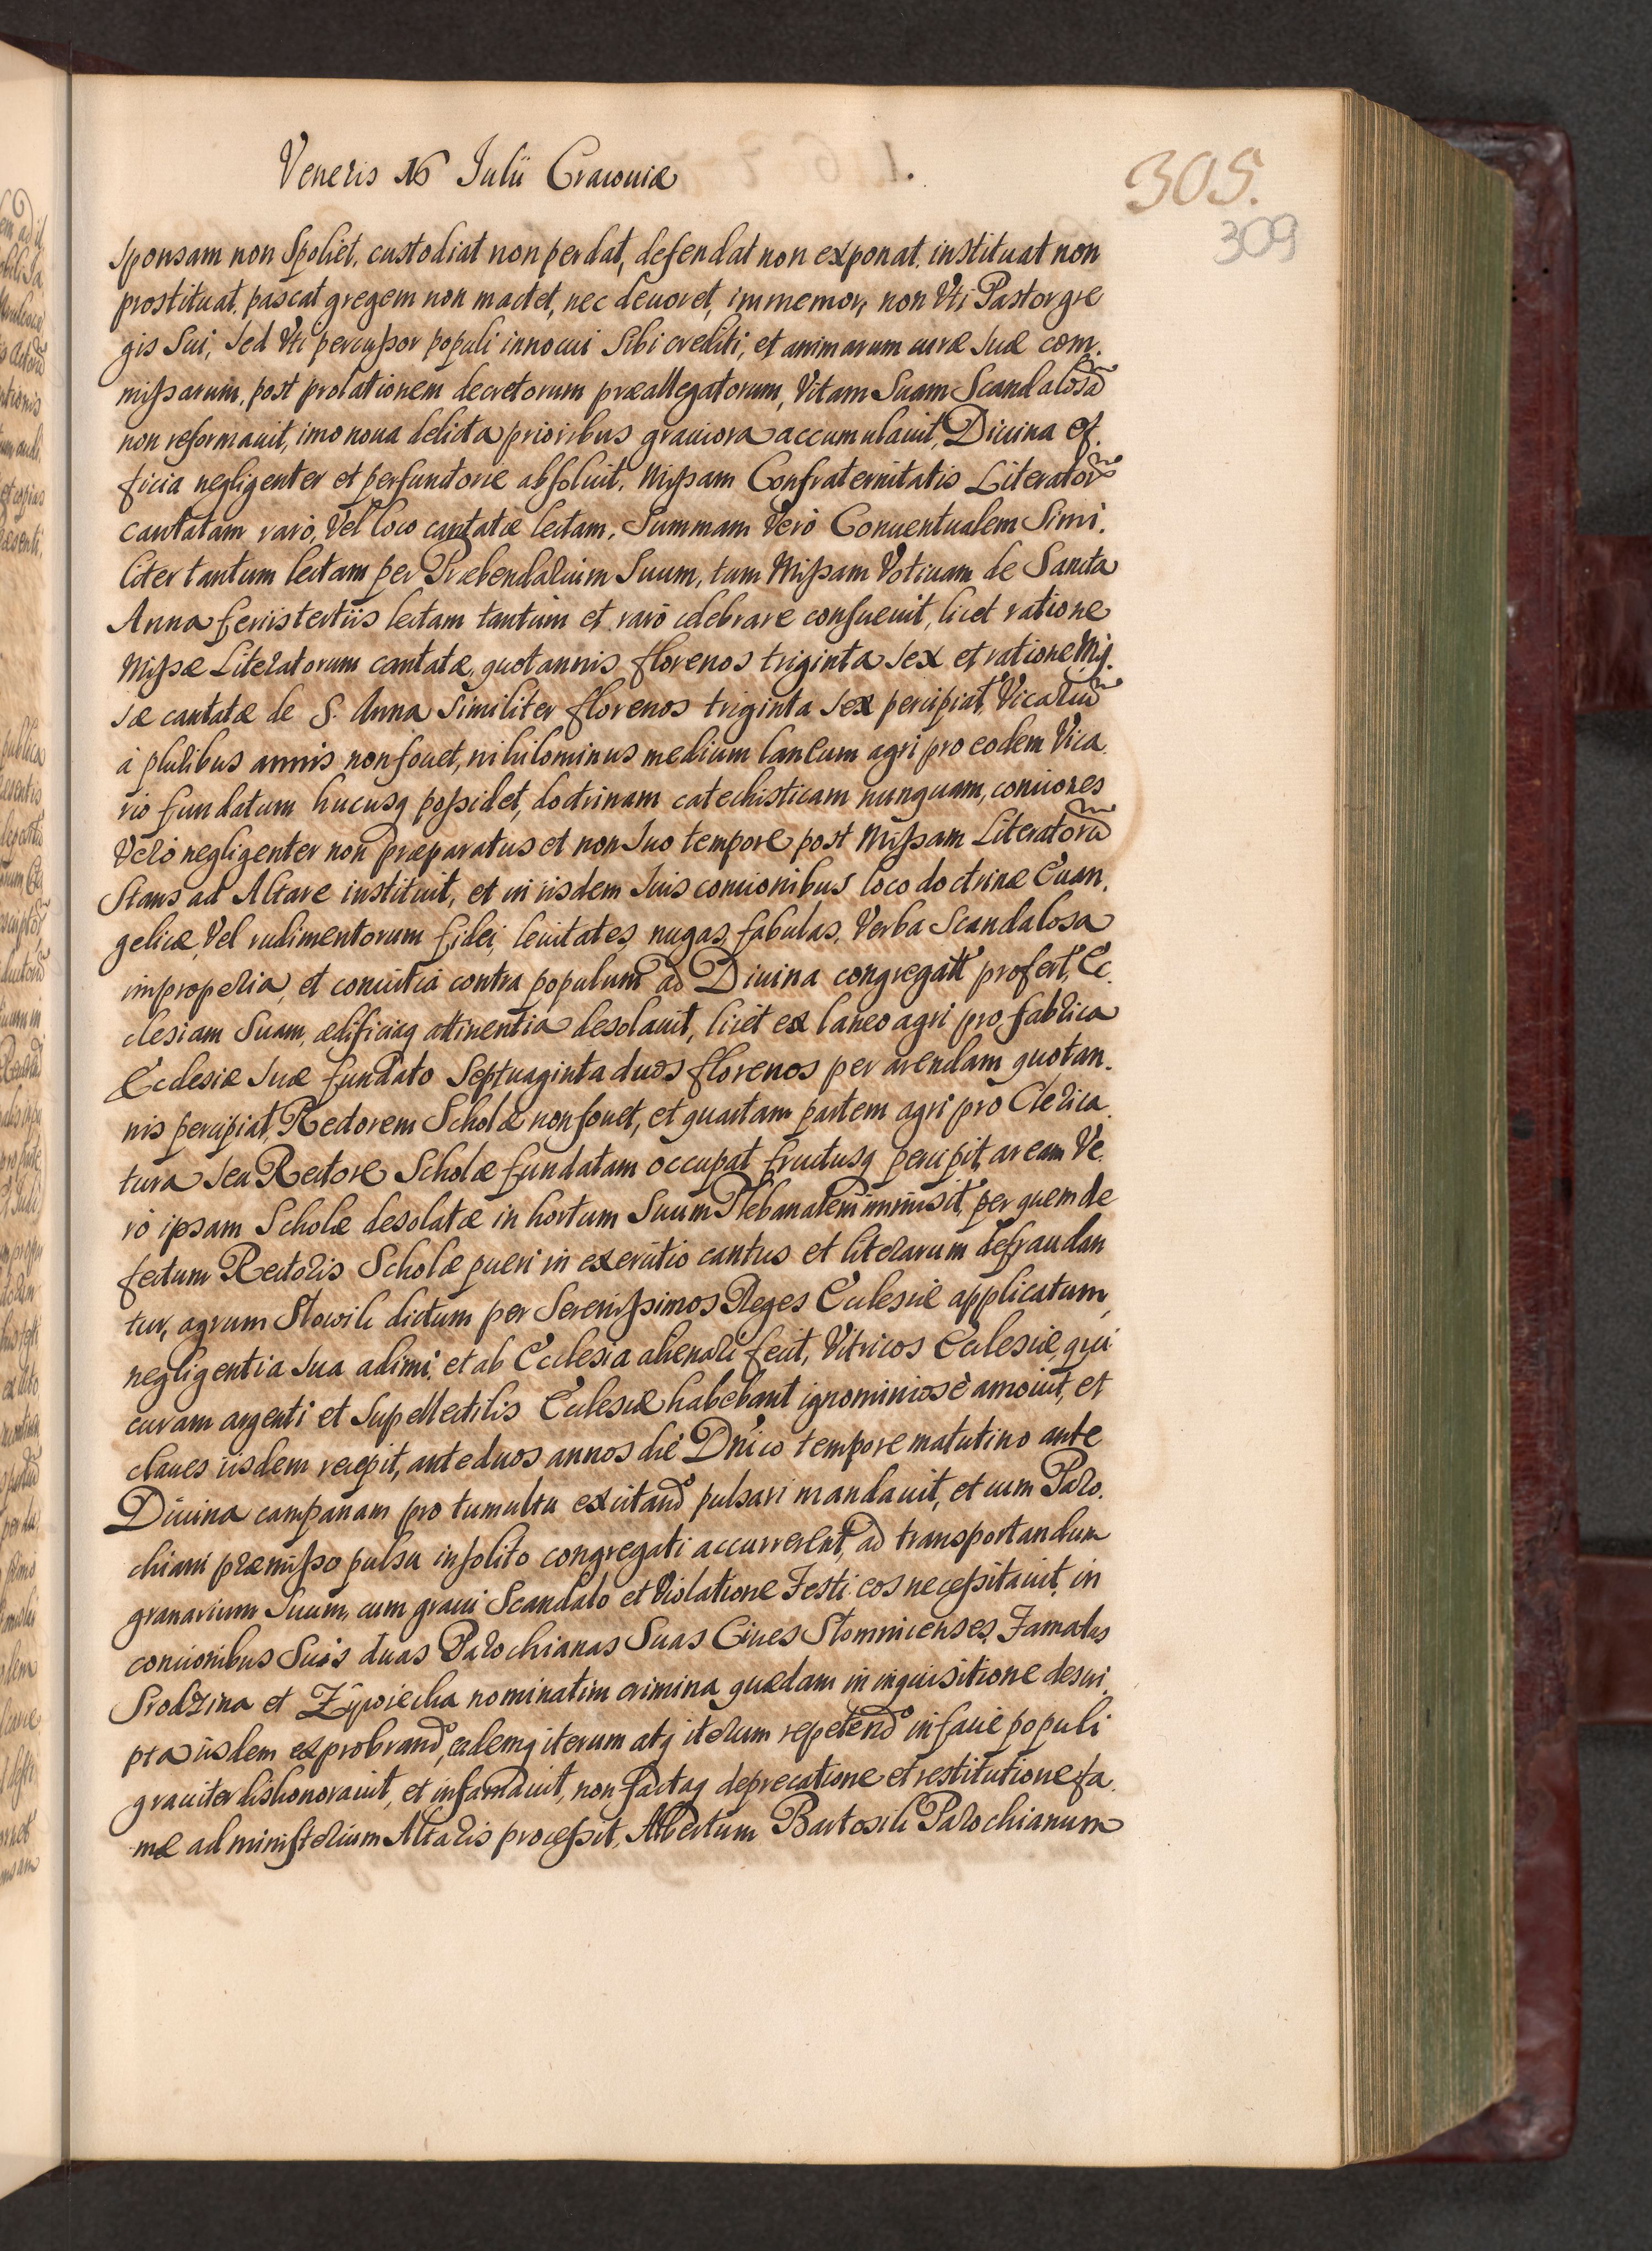 Veneris 16 Julii Cracouiæ
305.
309
sponsam non Spoliet, custodiat non perdat, defendat non exponat, instituat non
prostituat, pascat gregem non mactet, nec deuoret, immemor, non Vti Pastor gre
gis Sui, sed Vti percussor populi innocui Sibi crediti, et animarum curæ suæ com.
missarum, post prolationem decretorum præallegatorum, Vitam Suam Scandalosã
non reformauit, imo noua delicta prioribus grauiora accumulauit, Diuina of.
ficia negligenter et perfunctorie absoluit, Missam Confraternitatis Literatorũ
cantatam rarò, Vel loco cantatæ lectam, Summam Verò Conuentualem Simi.
liter tantum lectam per Præbendarium Suum, tum Missam Votiuam de Sancta
Anna feriis tertiis lectam tantùm et rarò celebrare consueuit, licet ratione
Missæ Literatorum cantatæ, quotannis florenos triginta sex et ratione Mis.
sæ cantatæ de S. Anna Similiter florenos triginta sex percipiat, Vicariũ
à pluribus annis non fouet, nihilominus medium laneum agri pro eodem Vica.
rio fundatum hucusq possidet, doctrinam catechisticam nunquam, conciones
Verò negligenter non præparatus et non suo tempore post Missam Literatorũ
Stans ad Altare instituit, et in iisdem suis concionibus loco doctrinæ Euan.
gelicæ, Vel rudimentorum fidei, leuitates, nugas, fabulas, Verba Scandalosa
improperia, et conuitia contra populum ad Diuina congregatũ profert, Ec.
clesiam Suam, ædificiaq attinentia desolauit, licet ex laneo agri pro fabrica
Ecclesiæ suæ fundato Septuaginta duos florenos per arendam quotan.
nis percipiat, Rectorem Scholæ non fouet, et quartam partem agri pro Clerica.
tura seu Rectore Scholæ fundatam occupat fructusq percipit, aream Ve.
rò ipsam Scholæ desolatæ in hortum Suum Plebanalem immisit, per quem de
fectum Rectoris Scholæ pueri in exercitio cantus et literarum defraudan
tur, agrum Stowili dictum per Serenissimos Reges Ecclesiæ applicatum,
negligentia sua adimi, et ab Ecclesia alienari fecit, Vitricos Ecclesiæ, qui
curam argenti et supellectilis Ecclesiæ habebant ignominiosè amouit, et
claues iisdem recepit, ante duos annos die Dnĩco tempore matutino ante
Diuina campanam pro tumultu excitando pulsari mandauit, et cum Paro.
chiani præmisso pulsu insolito congregati accurrerent, ad transportandum
granarium suum, cum graui Scandalo et Violatione Festi eos necessitauit, in
concionibus Suis duas Parochianas Suas Ciues Stomnicenses, Famatas
Srodzina et Zywiecka nominatim crimina quædam in inquisitione descri.
pta iisdem exprobrando, eademq iterum atq iterum repetendo in facie populi
grauiter dishonorauit, et infamauit, non factaq deprecatione et restitutione fa.
mæ ad ministerium Altaris processit, Albertum Bartosik Parochianum